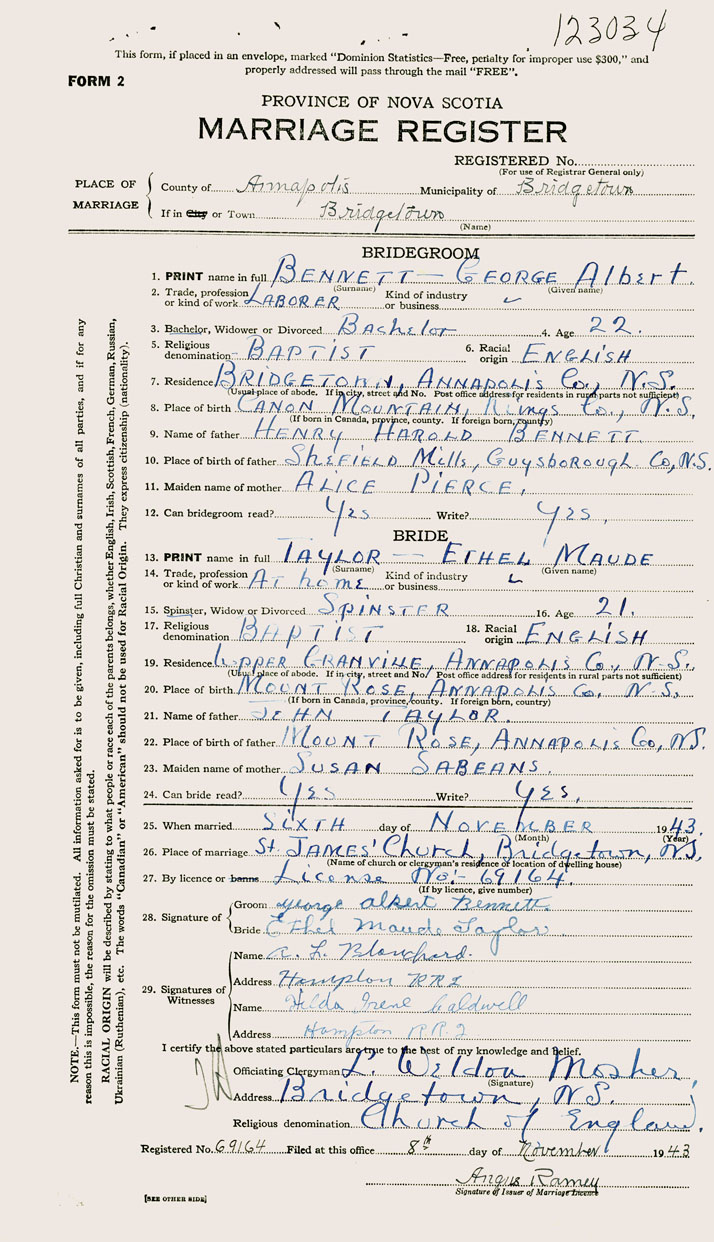 123034
This form, if placed in an envelope, marked "Dominion Statistics—Free, penalty for improper use $300," and
properly addressed will pass through the mail "FREE".
FORM 2
PROVINCE OF NOVA SCOTIA
MARRIAGE REGISTER
REGISTERED No.
(For use of Registrar General only)
PLACE OF MARRIAGE
County of Annapolis Municipality of Bridgetown
If in City or Town Bridgetown
(Name)
BRIDEGROOM
1. PRINT name in full BENNETT — GEORGE Albert.
(Surname) (Given name)
2. Trade, profession or kind of work LABORER Kind of industry or business
3. Bachelor, Widower or Divorced Bachelor 4. Age 22.
5. Religious denomination BAPTIST 6. Racial origin ENGLISH
7. Residence BRIDGETOWN, ANNAPOLIS Co., N.S.
(Usual place of abode. If in city, street and No. Post office address for residents in rural parts not sufficient)
8. Place of birth CANON MOUNTAIN, Kings Co., N.S.
(If born in Canada, province, county. If foreign born, country)
9. Name of father HENRY HAROLD BENNETT.
10. Place of birth of father SHEFIELD Mills, GUYSBOROUGH Co, N.S.
11. Maiden name of mother ALICE PIERCE,
12. Can bridegroom read? Yes Write? Yes,
BRIDE
13. PRINT name in full TAYLOR — ETHEL MAUDE
(Surname) (Given name)
14. Trade, profession or kind of work At home Kind of industry or business
15. Spinster, Widow or Divorced SPINSTER 16. Age 21.
17. Religious denomination BAPTIST 18. Racial origin ENGLISH
19. Residence UPPER GRANVILLE, ANNAPOLIS Co., N.S.
(Usual place of abode. If in city, street and No. Post office address for residents in rural parts not sufficient)
20. Place of birth MOUNT ROSE, ANNAPOLIS Co, N.S.
(If born in Canada, province, county. If foreign born, country)
21. Name of father JOHN TAYLOR.
22. Place of birth of father MOUNT ROSE, ANNAPOLIS Co, N.S.
23. Maiden name of mother SUSAN SABEANS.
24. Can bride read? Yes Write? YES,
25. When married SIXTH day of NOVEMBER 1943.
(Month) (Year)
26. Place of marriage St. JAMES' Church, Bridgetown, N.S.
(Name of church or clergyman's residence or location of dwelling house)
27. By licence or banns License No:- 69164.
(If by licence, give number)
28. Signature of
Groom George Albert Bennett.
Bride Ethel Maude Taylor.
29. Signatures of Witnesses
Name A. L. Blanchard.
Address Hampton RR2
Name Hilda Irene Caldwell
Address Hampton R.R.2
I certify the above stated particulars are true to the best of my knowledge and belief.
Officiating Clergyman L. Weldon Mosher,
(Signature)
Address Bridgetown, N.S.
Religious denomination Church of England.
Registered No. 69164 Filed at this office 8th day of November 1943
Angus Ramey
Signature of Issuer of Marriage Licence
[SEE OTHER SIDE]
NOTE.—This form must not be mutilated. All information asked for is to be given, including full Christian and surnames of all parties, and if for any
reason this is impossible, the reason for the omission must be stated.
RACIAL ORIGIN will be described by stating to what people or race each of the parents belongs, whether English, Irish, Scottish, French, German, Russian,
Ukrainian (Ruthenian), etc. The words "Canadian" or "American" should not be used for Racial Origin. They express citizenship (nationality).